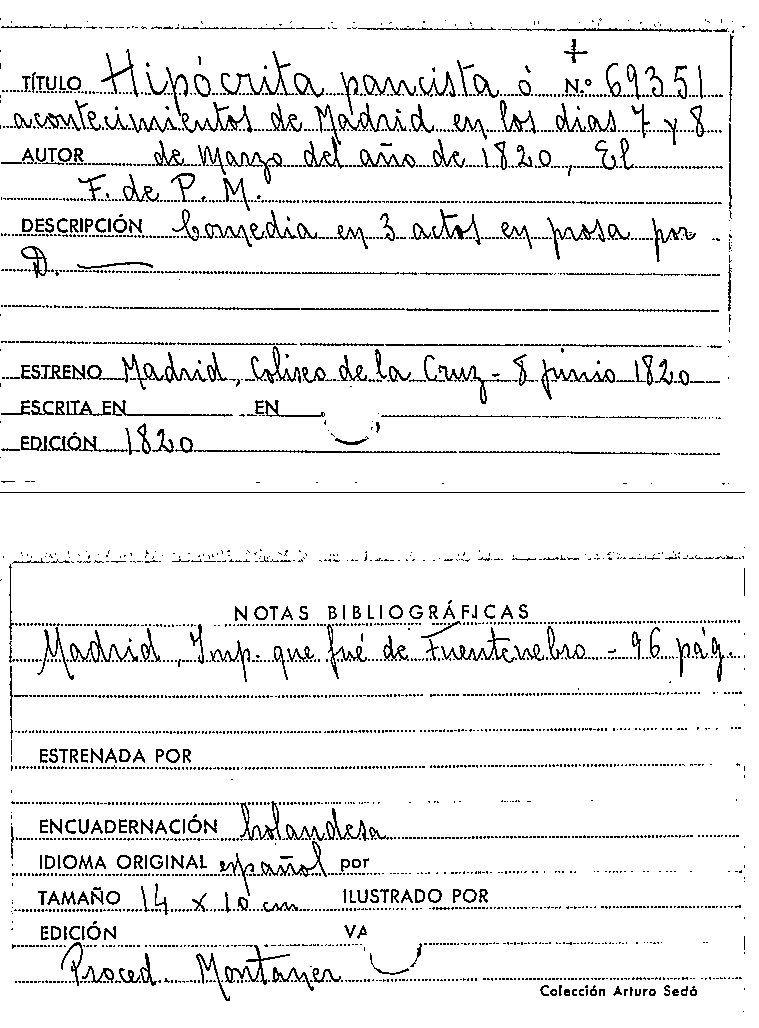 +
TÍTULO Hipócrita pancista ó N.º 69351
acontecimientos de Madrid en los dias 7 y 8
AUTOR de Marzo del año de 1820, El
F. de P. M.
DESCRIPCIÓN Comedia en 3 actos en prosa por
D. ——
ESTRENO Madrid, Coliseo de la Cruz - 8 junio 1820
ESCRITA EN EN
EDICIÓN 1820
NOTAS BIBLIOGRÁFICAS
Madrid, Imp. que fué de Fuentenebro - 96 pág.
ESTRENADA POR
ENCUADERNACIÓN holandesa
IDIOMA ORIGINAL español por
TAMAÑO 14 x 10 cm ILUSTRADO POR
EDICIÓN VA
Proced. Montaner
Colección Arturo Sedó